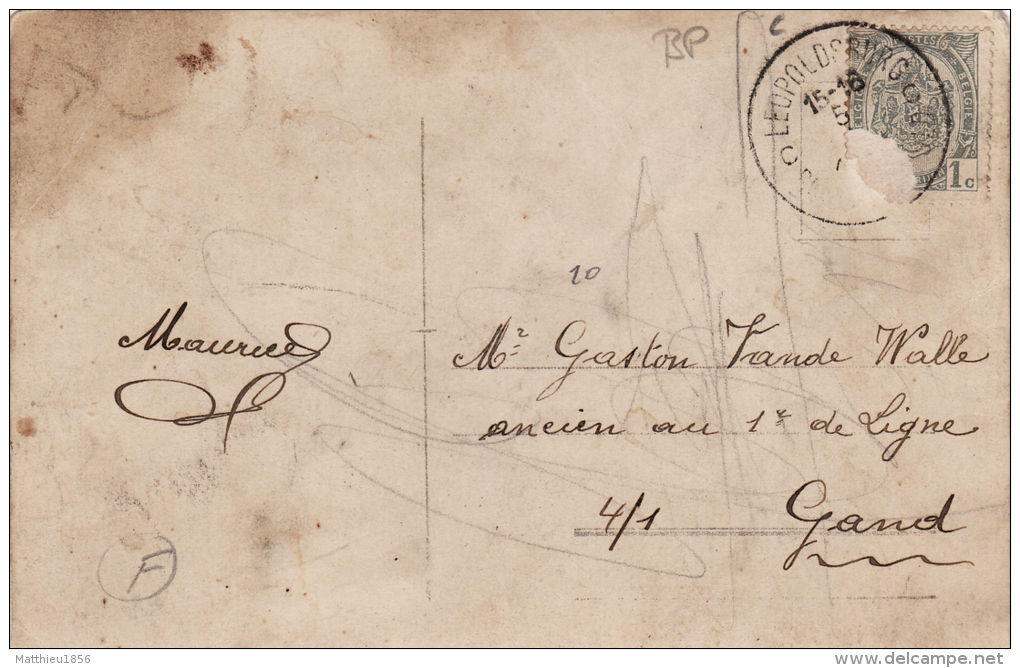 BP
LEOPOLDSBURG
15-16
5
POSTES
BELGIE
BELGIQUE
1c
10
Maurice
Mr Gaston Vande Walle
ancien au 1r de Ligne
4/1 Gand
F
Matthieu1856
www.delcampe.net